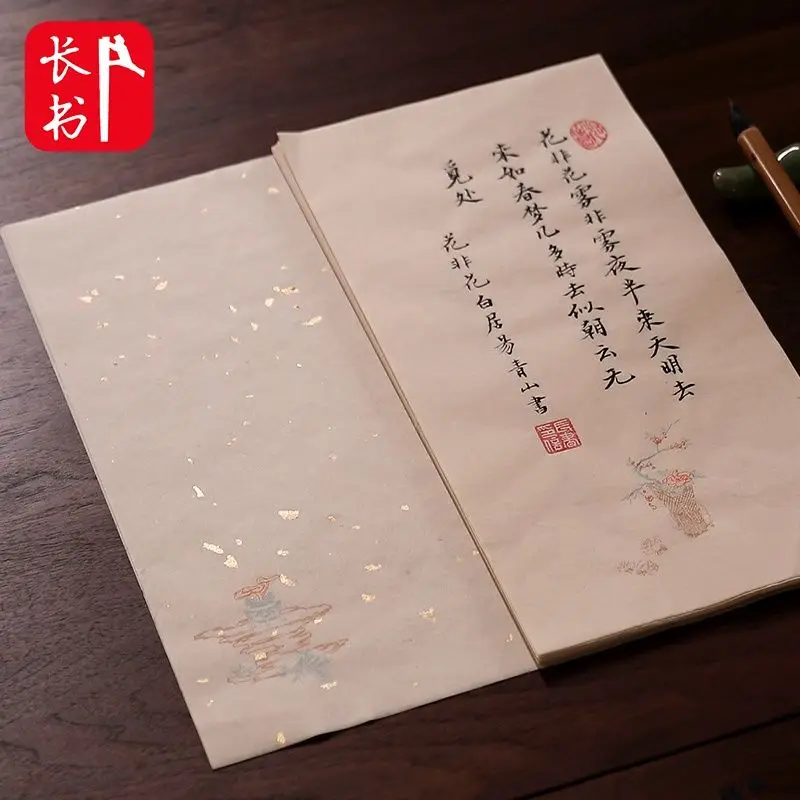 长书
花非花雾非雾夜半來天明去
来如春梦几多時去似朝云无
觅处 花非花白居易青山書
長書印信